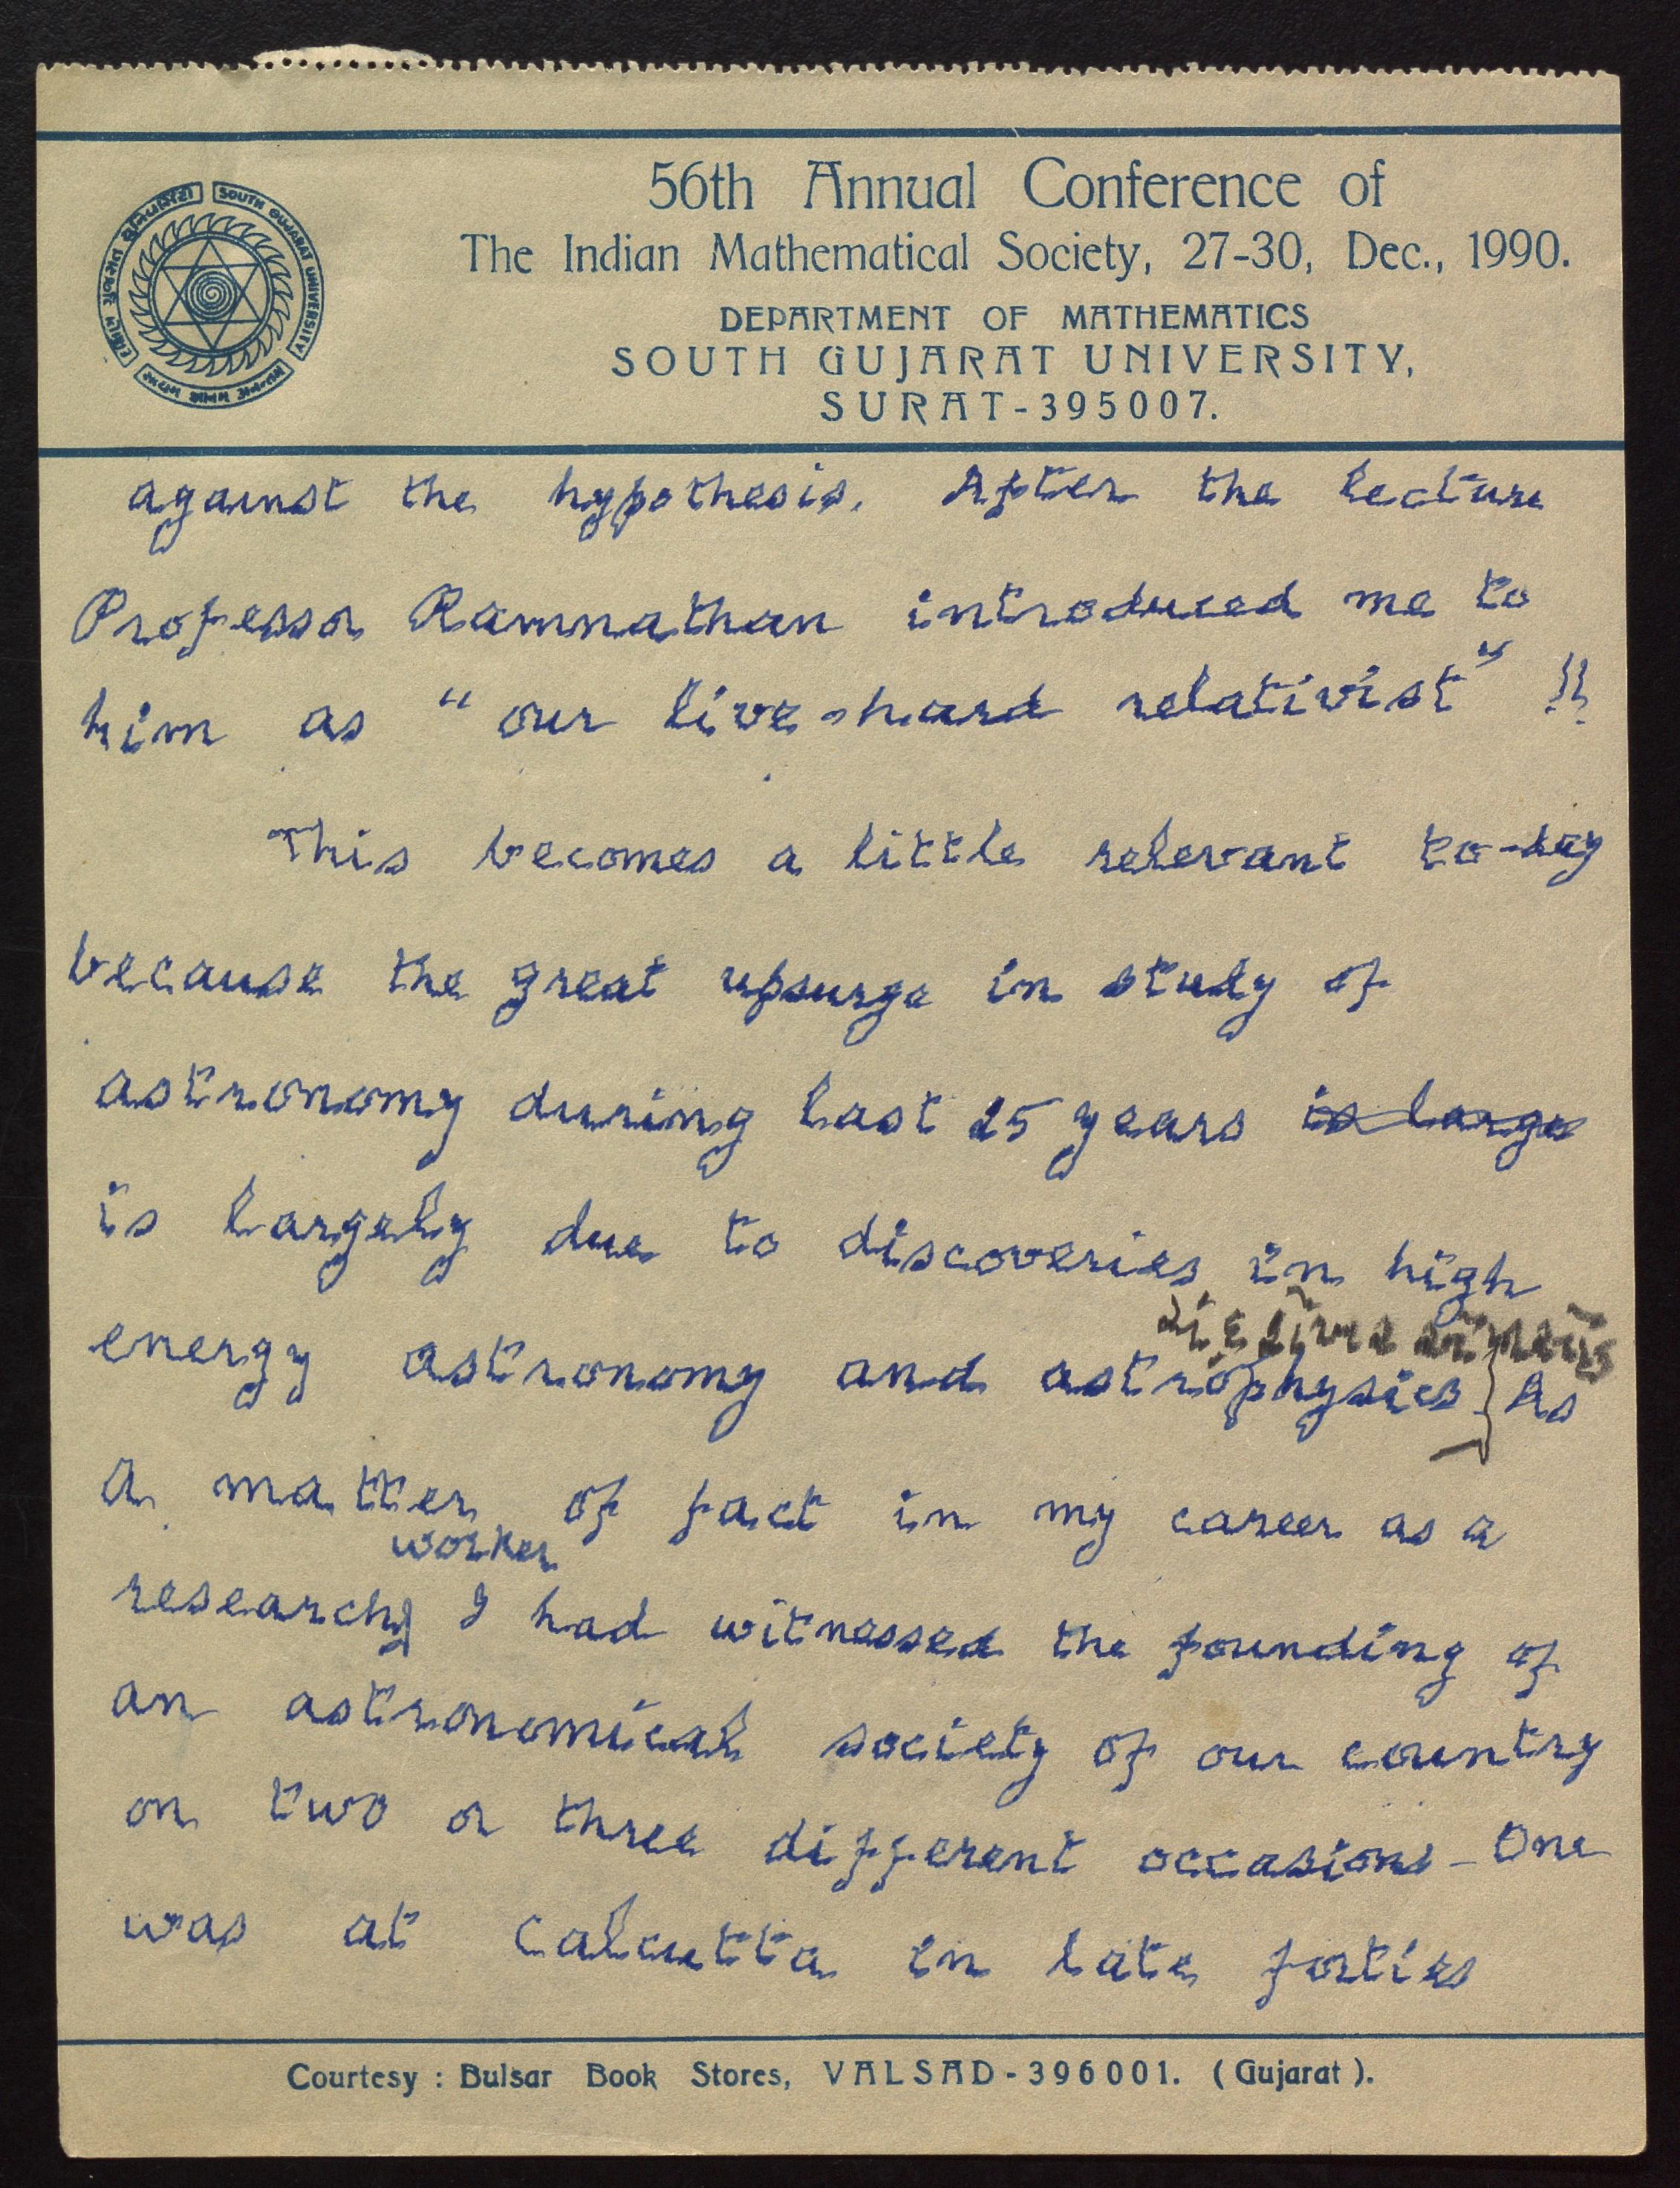 SOUTH GUJARAT UNIVERSITY
56th Annual Conference of
The Indian Mathematical Society, 27-30, Dec., 1990.
DEPARTMENT OF MATHEMATICS
SOUTH GUJARAT UNIVERSITY,
SURAT-395007.
against the hypothesis. After the lecture
Professor Ramnathan introduced me to
him as "our live-hard relativist" !!
This becomes a little relevant to-day
because the great upsurge in study of
astronomy during last 25 years is large
is largely due to discoveries in high
energy astronomy and astrophysics } As
a matter of fact in my career as a
worker
research I had witnessed the founding of
an astronomical society of our country
on two or three different occasions - One
was at Calcutta in late forties
Courtesy : Bulsar Book Stores, VALSAD-396001. (Gujarat).